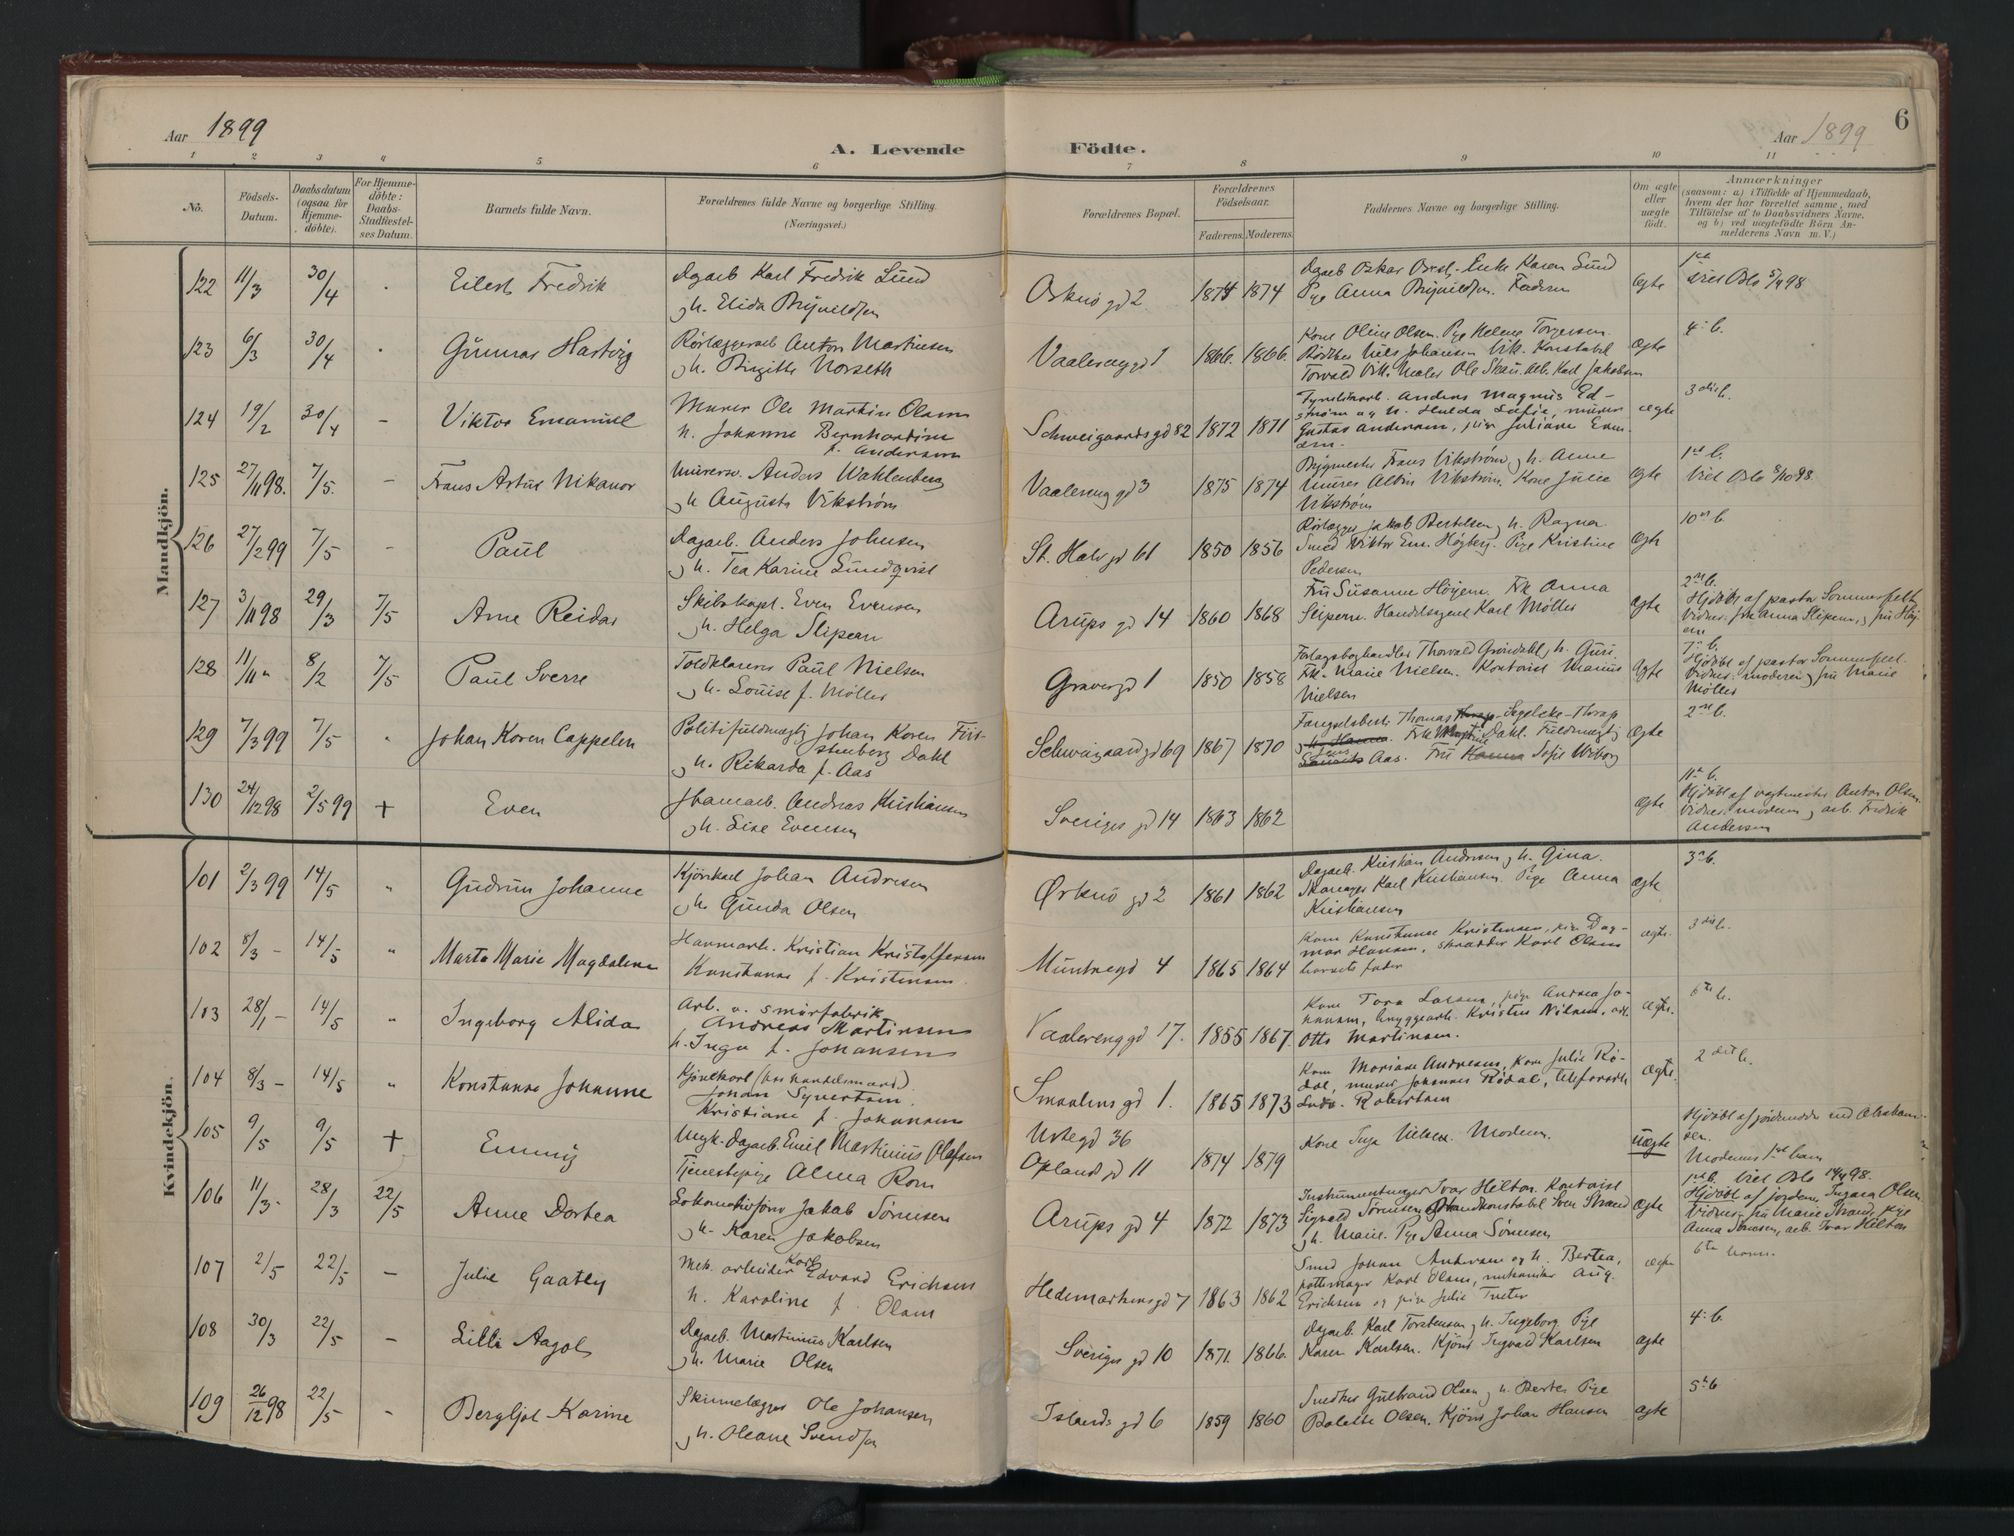 Aar 1899
A. Levende Födte.
Aar 1899
6
1 2 3 4 5 6 7 8 9 10 11
No.
Födsels-Datum.
Daabsdatum (ogsaa for Hjemme-döbte).
For Hjemme-döbte: Daabs-Stadfæstel-ses Datum.
Barnets fulde Navn.
Forældrenes fulde Navne og borgerlige Stilling. (Næringsvei.)
Forældrenes Bopæl.
Forældrenes Födselsaar.
Faderens. Moderens.
Faddernes Navne og borgerlige Stilling.
Om ægte eller uægte födt.
Anmærkninger
(saasom: a) i Tilfælde af Hjemmedaab, hvem der har forrettet samme, med Tilföielse af to Daabsvidners Navne, og b) ved uægtefödte Börn An-melderens Navn m. V.)
Mandkjön.
122 11/3 30/4 Eilert Fredrik
Dagarb Karl Fredrik Lund
h. Elida Brynildsen
gd 2 1874 1874
Pige Anna Brynildsen. Faderen
ægte
viet Oslo 98
123 6/3 30/4 Gunnar Hartvig
Anton Martinsen
h. Birgitte Norseth
Vaalereng gd 1 1866. 1866.
Kone Oline Olsen. Pige Helene Torgersen.
Niels Johansen Vik. Konstabel
Torvald Vik. Maler Ole Skau. Arb. Karl Jakobsen
ægte
4. b.
124 19/2 30/4 Viktor Emanuel
Murer Ole Martin Olsen
h. Johanne Bernhardine
f. Andersen
Schweigaards gd 82 1872 1871
Anders Magnus Ed-
strøm og h. Hulda Sofie, murer
Gustav Andersen, pige Juliane Evensen.
ægte
3die b.
125 27/11 98. 7/5. Frans Artur Nikanor
Anders Wahlenberg
h Augusta Vikstrøm
Vaalereng gd 3 1875 1874
Bygmester Frans Vikstrøm h. Anne
Murer Albin Vikström. Kone Julie
Vikstrøm
ægte
1ste b.
Viet Oslo 8/10 98.
126 27/2 99 7/5 Paul
Dagarb. Anders Johnsen
h. Tea Karine Lundqvist
St. Halv gd 61 1850 1856
Rørlægger Jakob Bertelsen h. Ragna.
Smed Viktor Em. Högberg. Pige Kristine
Pedersen
ægte
10 b.
127 3/11 98 29/3 7/5 Arne Reidar
Skibskapt. Even Evensen
h. Helga Slipern
Arups gd 14 1860 1868
Fru Susanne Höyem. Frk Anna
Slipern. Handelsagent Karl Møller
ægte
2 b.
Hjdöbt af pastor Sommerfelt
Vidner: frk Anna Slipern, fru Höyem
128 11/11 8/2 7/5 Paul Sverre
Toldklarerer Paul Nielsen
h. Louise f. Møller
Graver gd 1 1850 1858
Forlagsboghandler Thorvald Gröndahl h. Guri.
Frk. Marie Nielsen. Kontorist Marius
Nielsen
ægte
7 b.
Hjdöbt af pastor Sommerfelt.
Vidner: moderen, fru Marie
Møller
129 7/3 99 7/5 Johan Koren Cappelen
Politifuldmægtig Johan Koren Für-
stenberg Dahl
h. Rikarda f. Aas
Schweigaard gd 69 1867 1870
Fængselsbest. Thomas Segelcke-Thrap
Frk Dahl. Fuldmægtig
Aas. Fru Sofie Wiborg
ægte
2 b.
130 24/12 98 2/5 99 + Even
Andreas Kristiansen
h. Lise Evensen
Sveriges gd 14 1863 1862
ægte
11 b.
Hjdöbt af vagtmester Anton Olsen.
Vidner: moderen, arb. Fredrik
Andersen
Kvindekjön.
101 2/3 99 14/5 Gudrun Johanne
Kjörekarl Johan Andresen
h. Gunda Olsen
Ørknö gd 2 1861 1862
Dagarb. Kristian Andresen h. Gina.
Karl Kristiansen. Pige Anna
Kristiansen
ægte
3 b.
102 8/3 14/5 Marta Marie Magdalene
Havnarb. Kristian Kristoffersen
Konstanse f. Kristensen.
Munkegd 4 1865 1864
Kone Konstanse Kristensen, pige Dag-
mar Hansen, skrædder Karl Olsen
barnets fader
ægte.
3die b.
103 28/1 14/5 Ingeborg Alida
Arb. v. smörfabrik
Andreas Martinsen
h. Inga f. Johansen
Vaalereng gd 17. 1855 1867.
Kone Tora Larsen, pige Andrea Jo-
hansen, bryggearb. Kristen Nilsen, arb.
Otto Martinsen.
ægte.
6te b.
104 8/3 14/5 Konstanse Johanne
Kjörekarl (hos handelsmand).
Johan Syvertsen.
Kristiane f. Johansen
Smaalens gd 1. 1865 1873
Kone Mariane Andresen, Kone Julie Rö-
dal, murer Johannes Rödal, telefonarb.
Ludv. Robertsen
ægte.
2det b.
105 9/5 9/5 + Emmy
Ungk. Dagarb Emil Martinius Olafsen
Tjenestepige Alma Rom
Urtegd 36
Opland gd 11 1874 1879
Kone Inga Nielsen. Moderen.
uægte
Hjdöbt af jordemoder Abraham-
sen.
Moderens 1ste barn
106 11/3 28/3 22/5 Anne Dortea
Jakob Sörensen
h. Karen Jakobsen
Arups gd 4 1872 1873
Instrumentmager Ivar Hilton. Kontorist
Sigvald Sörensen Brandkonstabel Sven Strand
h. Marie. Pige Anna Sörensen
ægte
1ste b. Viet Oslo 98.
Hjdöbt af jordem. Ingara Olsen
Vidner: fru Marie Strand, pige
Anna Sörensen, arb. Ivar Hilton
107 2/5 22/5 Julie Gaathy
Mek. arbeider Karl Edvard Erichsen
h. Karoline f. Olsen
Hedemarkens gd 7 1863 1862
Smed Johan Andersen og h. Bertea,
pottemager Karl Olsen, mekaniker Aug.
Erichsen og pige Julie
ægte
6te barn.
108 30/3 22/5 Lilli Aagot
Dagarb. Martinius Karlsen
h. Marie Olsen
Sveriges gd 10 1871. 1866.
Dagarb. Karl Torstensen h. Ingeborg Pige
Karen Karlsen. Kjörer Ingvald Karlsen
ægte
4. b.
109 26/12 98 22/5 Bergljot Karine
Ole Johansen
h. Oleane Svendsen
Islands gd 6 1859 1860
Gulbrand Olsen h. Berte Pige
Bolette Olsen. Kjörer Johan Hansen
ægte
5 b